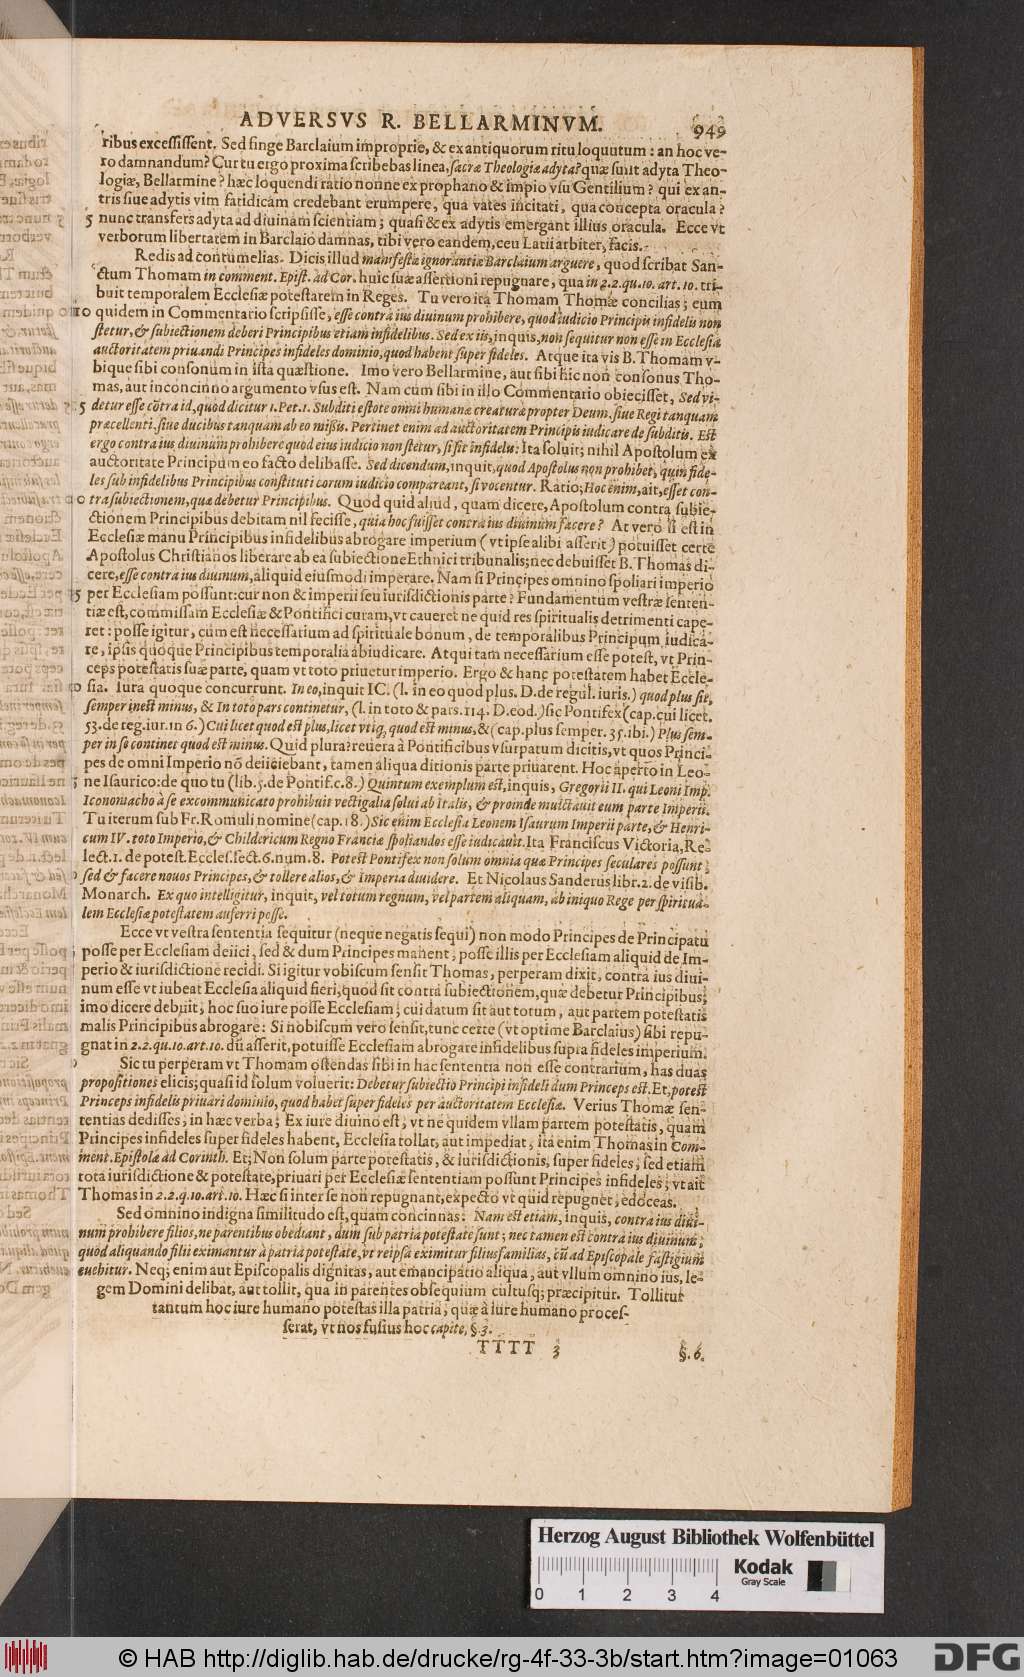 ADVERSVS R. BELLARMINVM. 949
ribus excessissent. Sed finge Barclaium improprie, & ex antiquorum ritu loquutum : an hoc ve-
ro damnandum? Cur tu ergo proxima scribebas linea, sacræ Theologiæ adyta? quæ sunt adyta Theo-
logiæ, Bellarmine? hæc loquendi ratio nonne ex prophano & impio vsu Gentilium? qui ex an-
tris siue adytis vim fatidicam credebant erumpere, qua vates incitati, qua concepta oracula?
5 nunc transfers adyta ad diuinam scientiam; quasi & ex adytis emergant illius oracula. Ecce vt
verborum libertatem in Barclaio damnas, tibi vero eandem, ceu Latii arbiter, facis.
Redis ad contumelias. Dicis illud manifestæ ignorantiæ Barclaium arguere, quod scribat San-
ctum Thomam in comment. Epist. ad Cor. huic suæ assertioni repugnare, qua in 2. 2. qu. 10. art. 10. tri-
buit temporalem Ecclesiæ potestatem in Reges. Tu vero ita Thomam Thomæ concilias; eum
10 quidem in Commentario scripsisse, esse contra ius diuinum prohibere, quod iudicio Principis infidelis non
stetur, & subiectionem deberi Principibus etiam infidelibus. Sed ex iis, inquis, non sequitur non esse in Ecclesia
auctoritatem priuandi Principes infideles dominio, quod habent super fideles. Atque ita vis B. Thomam v-
bique sibi consonum in ista quæstione. Imo vero Bellarmine, aut sibi hic non consonus Tho-
mas, aut inconcinno argumento vsus est. Nam cum sibi in illo Commentario obiecisset, Sed vi-
5 detur esse cōtra id, quod dicitur 1. Pet. 1. Subditi estote omni humanæ creaturæ propter Deum, siue Regi tanquam
præcellenti, siue ducibus tanquam ab eo missis. Pertinet enim ad auctoritatem Principis iudicare de subditis. Est
ergo contra ius diuinum prohibere quod eius iudicio non stetur, si sit infidelis: Ita soluit; nihil Apostolum ex
auctoritate Principum eo facto delibasse. Sed dicendum, inquit, quod Apostolus non prohibet, quin fide-
les sub infidelibus Principibus constituti eorum iudicio compareant, si vocentur. Ratio; Hoc enim, ait, esset con-
tra subiectionem, quæ debetur Principibus. Quod quid aliud, quam dicere, Apostolum contra subie-
ctionem Principibus debitam nil fecisse, quia hoc fuisset contra ius diuinum facere? At vero si est in
Ecclesiæ manu Principibus infidelibus abrogare imperium (vt ipse alibi asserit) potuisset certe
Apostolus Christianos liberare ab ea subiectione Ethnici tribunalis; nec debuisset B. Thomas di-
cere, esse contra ius diuinum, aliquid eiusmodi imperare. Nam si Principes omnino spoliari imperio
5 per Ecclesiam possunt: cur non & imperii seu iurisdictionis parte? Fundamentum vestræ senten-
tiæ est, commissam Ecclesiæ & Pontifici curam, vt caueret ne quid res spiritualis detrimenti cape-
ret: posse igitur, cum est necessarium ad spirituale bonum, de temporalibus Principum iudica-
re, ipsis quoque Principibus temporalia abiudicare. Atqui tam necessarium esse potest, vt Prin-
ceps potestatis suæ parte, quam vt toto priuetur imperio. Ergo & hanc potestatem habet Eccle-
sia. Iura quoque concurrunt. In eo, inquit IC. (l. in eo quod plus. D. de regul. iuris.) quod plus sit,
semper inest minus, & In toto pars continetur, (l. in toto & pars. 114. D. eod.) sic Pontifex (cap. cui licet.
53. de reg. iur. in 6.) Cui licet quod est plus, licet vtiq, quod est minus, & (cap. plus semper. 35. ibi.) Plus sem-
per in se continet quod est minus. Quid plura? reuera à Pontificibus vsurpatum dicitis, vt quos Princi-
pes de omni Imperio nō deiiciebant, tamen aliqua ditionis parte priuarent. Hoc aperto in Leo-
ne Isaurico: de quo tu (lib. 5. de Pontif. c. 8.) Quintum exemplum est, inquis, Gregorii II. qui Leoni Imp.
Iconomacho à se excommunicato prohibuit vectigalia solui ab Italis, & proinde mulctauit eum parte Imperii.
Tu iterum sub Fr. Romuli nomine (cap. 18.) Sic enim Ecclesia Leonem Isaurum Imperii parte, & Henri-
cum IV. toto Imperio, & Childericum Regno Franciæ spoliandos esse iudicauit. Ita Franciscus Victoria, Re-
lect. 1. de potest. Eccles. sect. 6. num. 8. Potest Pontifex non solum omnia quæ Principes seculares possunt;
sed & facere nouos Principes, & tollere alios, & imperia diuidere. Et Nicolaus Sanderus libr. 2. de visib.
Monarch. Ex quo intelligitur, inquit, vel totum regnum, vel partem aliquam, ab iniquo Rege per spiritua-
lem Ecclesiæ potestatem auferri posse.
Ecce vt vestra sententia sequitur (neque negatis sequi) non modo Principes de Principatu
posse per Ecclesiam deiici, sed & dum Principes manent, posse illis per Ecclesiam aliquid de Im-
perio & iurisdictione recidi. Si igitur vobiscum sensit Thomas, perperam dixit, contra ius diui-
num esse vt iubeat Ecclesia aliquid fieri, quod sit contra subiectionem, quæ debetur Principibus;
imo dicere debuit, hoc suo iure posse Ecclesiam; cui datum sit aut totum, aut partem potestatis
malis Principibus abrogare: Si nobiscum vero sensit, tunc certe (vt optime Barclaius) sibi repu-
gnat in 2. 2. qu. 10. art. 10. dū asserit, potuisse Ecclesiam abrogare infidelibus supra fideles imperium.
Sic tu perperam vt Thomam ostendas sibi in hac sententia non esse contrarium, has duas
propositiones elicis; quasi id solum voluerit: Debetur subiectio Principi infideli dum Princeps est. Et, potest
Princeps infidelis priuari dominio, quod habet super fideles per auctoritatem Ecclesiæ. Verius Thomæ sen-
tentias dedisses, in hæc verba; Ex iure diuino est, vt ne quidem vllam partem potestatis, quam
Principes infideles super fideles habent, Ecclesia tollat, aut impediat, ita enim Thomas in Com-
ment. Epistolæ ad Corinth. Et; Non solum parte potestatis, & iurisdictionis, super fideles; sed etiam
tota iurisdictione & potestate, priuari per Ecclesiæ sententiam possunt Principes infideles; vt ait
Thomas in 2. 2. q. 10. art. 10. Hæc si inter se non repugnant, expecto vt quid repugnet, edoceas.
Sed omnino indigna similitudo est, quam concinnas: Nam est etiam, inquis, contra ius diui-
num prohibere filios, ne parentibus obediant, dum sub patria potestate sunt; nec tamen est contra ius diuinum;
quod aliquando filii eximantur à patria potestate, vt reipsa eximitur filiusfamilias, cū ad Episcopale fastigium
euehitur. Neq; enim aut Episcopalis dignitas, aut emancipatio aliqua, aut vllum omnino ius, le-
gem Domini delibat, aut tollit, qua in parentes obsequium cultusq; præcipitur. Tollitur
tantum hoc iure humano potestas illa patria, quæ à iure humano proces-
serat, vt nos fusius hoc capite, §. 3.
TTTT 3 §. 6.
Herzog August Bibliothek Wolfenbüttel
0 1 2 3 4
Kodak
Gray Scale
© HAB http://diglib.hab.de/drucke/rg-4f-33-3b/start.htm?image=01063
DFG